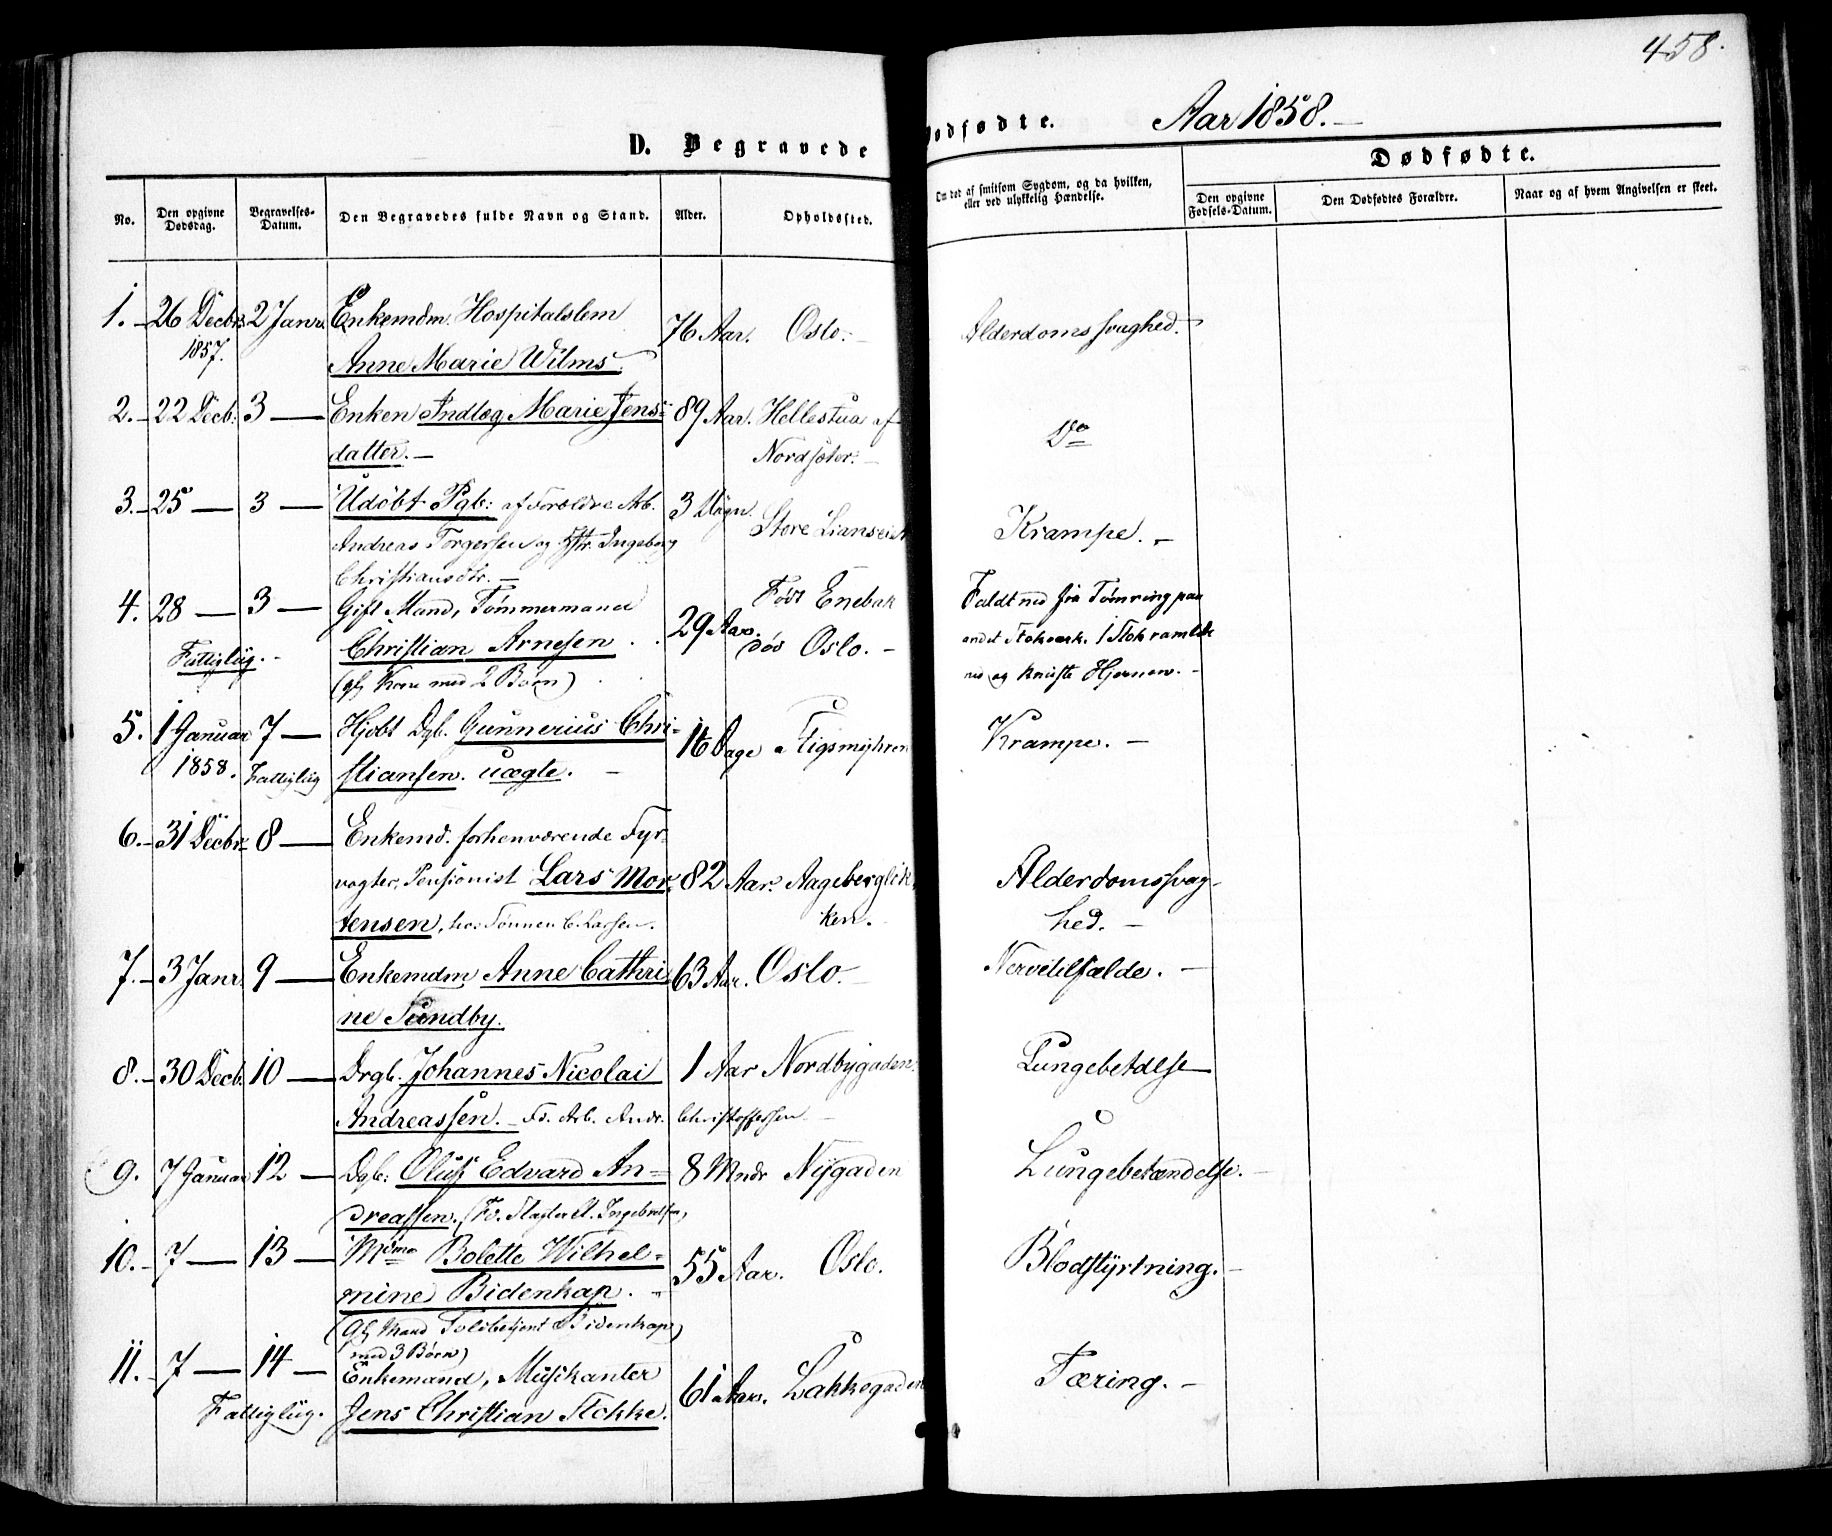 458.
D. Begravede
Dødfødte. Aar 1858.
No. Den opgivne Dødsdag. Begravelses-Datum. Den Begravedes fulde Navn og Stand. Alder. Opholdssted.
Om død af smitsom Sygdom, og da hvilken, eller ved ulykkelig Hændelse.
Dødfødte.
Den opgivne Fødsels-Datum. Den Dødfødtes Forældre. Naar og af hvem Angivelsen er skeet.
1. 26 Decbr. 2 Janr. Enkemdm. Hospitalslem 76 Aar. Oslo. Alderdomssvaghed.
1857. Anne Marie Wilms.
2. 22 Decb. 3 — Enken Indlæg Marie Jens- 89 Aar. Hellestua af Do
datter. — Nordseter. —
3. 25 — 3 — Udøbt Pgb: af Forældre Arb. 3 Uger Store Lianseiet Krampe. —
Andreas Torgersen og Hstr. Ingeborg
Christiansdtr. —
4. 28 — 3 — Gift Mand, Tømmermand 29 Aar. Født Enebak Faldt ned fra Tømring paa
Fattiglig. Christian Arnesen død Oslo. — andet Stokværk. 1 Stok ramlede
(gl. Kone med 2 Børn) ned og knuste Hjernen. —
5. 1 Januar 7 — Hjdbt Dgb. Gunnerius Chri- 16 Dage Figsmyhren Krampe. —
1858. Fattiglig stiansen. uægte. —
6. 31 Decbr. 8 — Enkemd. forhenværende Fyr-
vogter, Pensionist Lars Mor- 82 Aar. Aagebergløk- Alderdomssvag-
tensen, hos Sønnen C. Larsen. ken. hed. —
7. 3 Janr. 9 — Enkemdm Anne Cathri- 63 Aar. Oslo. Nervetilfælde. —
ne Sundby.
8. 30 Decb. 10 — Drgb. Johannes Nicolai 1 Aar Nordbygaden. Lungebetdlse
Andreassen. — Fd. Arb. Andr. Christoffersen —
9. 7 Januar 12 — Dgb: Oluf Edvard An- 8 Mndr Nygaden Lungebetændelse. —
dreassen. (Fd. Slagter A. Ingebretsen)
10. 7 — 13 — Mdme Bolette Wilhel- 55 Aar. Oslo. Blodstyrtning. —
mine Bidenkap. —
(gl. Mand Toldbetjent Bidenkap
med 3 Børn)
11. 7 — 14 — Enkemand, Musikanter 61 Aar. Lakkegaden Tæring. —
Fattiglig. Jens Christian Stokke.